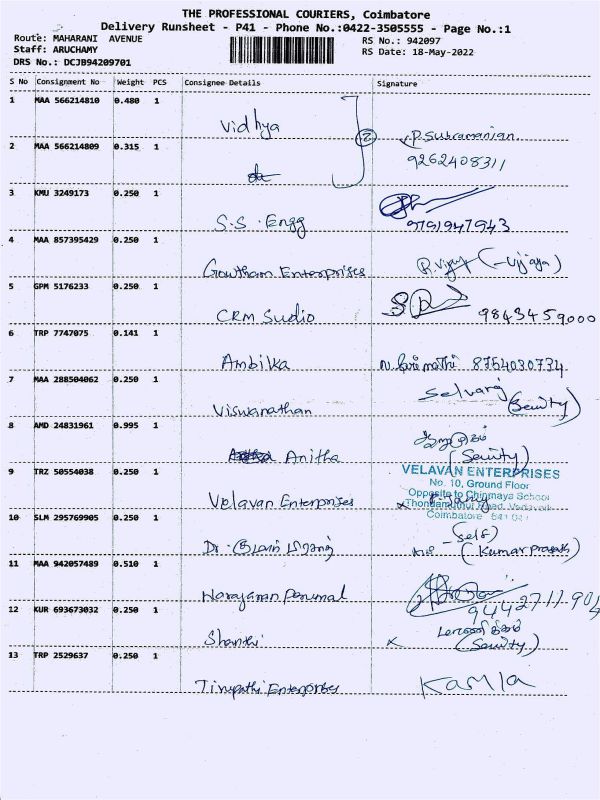 THE PROFESSIONAL COURIERS, Coimbatore
Delivery Runsheet - P41 - Phone No.:0422-3505555 - Page No.:1
Route: MAHARANI AVENUE
RS No.: 942097
Staff: ARUCHAMY
RS Date: 18-May-2022
DRS No.: DCJB94209701
S No Consignment No Weight PCS Consignee Details Signature
1 MAA 566214810 0.480 1
Vidhya
12
P. Subramanian
2 MAA 566214809 0.315 1
9262408311
3 KMU 3249173 0.250 1
S.S. Engg
9791947943
4 MAA 857395429 0.250 1
Gowtham Enterprises
R. Vijay (Vijaya)
5 GPM 5176233 0.250 1
CRM Sudio
9843459000
6 TRP 7747075 0.141 1
Ambika
8754030734
7 MAA 288504062 0.250 1
Viswanathan
Selvaraj
(Seuity)
8 AMD 24831961 0.995 1
Anitha
(Seuity)
9 TRZ 50554038 0.250 1
Velavan Enterprises
VELAVAN ENTERPRISES
No. 10, Ground Floor
Opposite to Chinmaya School
Thondamuthur Road, Vadavalli
Coimbatore
10 SLM 295769905 0.250 1
Dr.
(Self)
(Kumar prasath)
11 MAA 942057489 0.510 1
Narayanan Perumal
9442711904
12 KUR 693673032 0.250 1
Shanthi
x
(Seuity)
13 TRP 2529637 0.250 1
Tirupathi Enterprises
Kamla